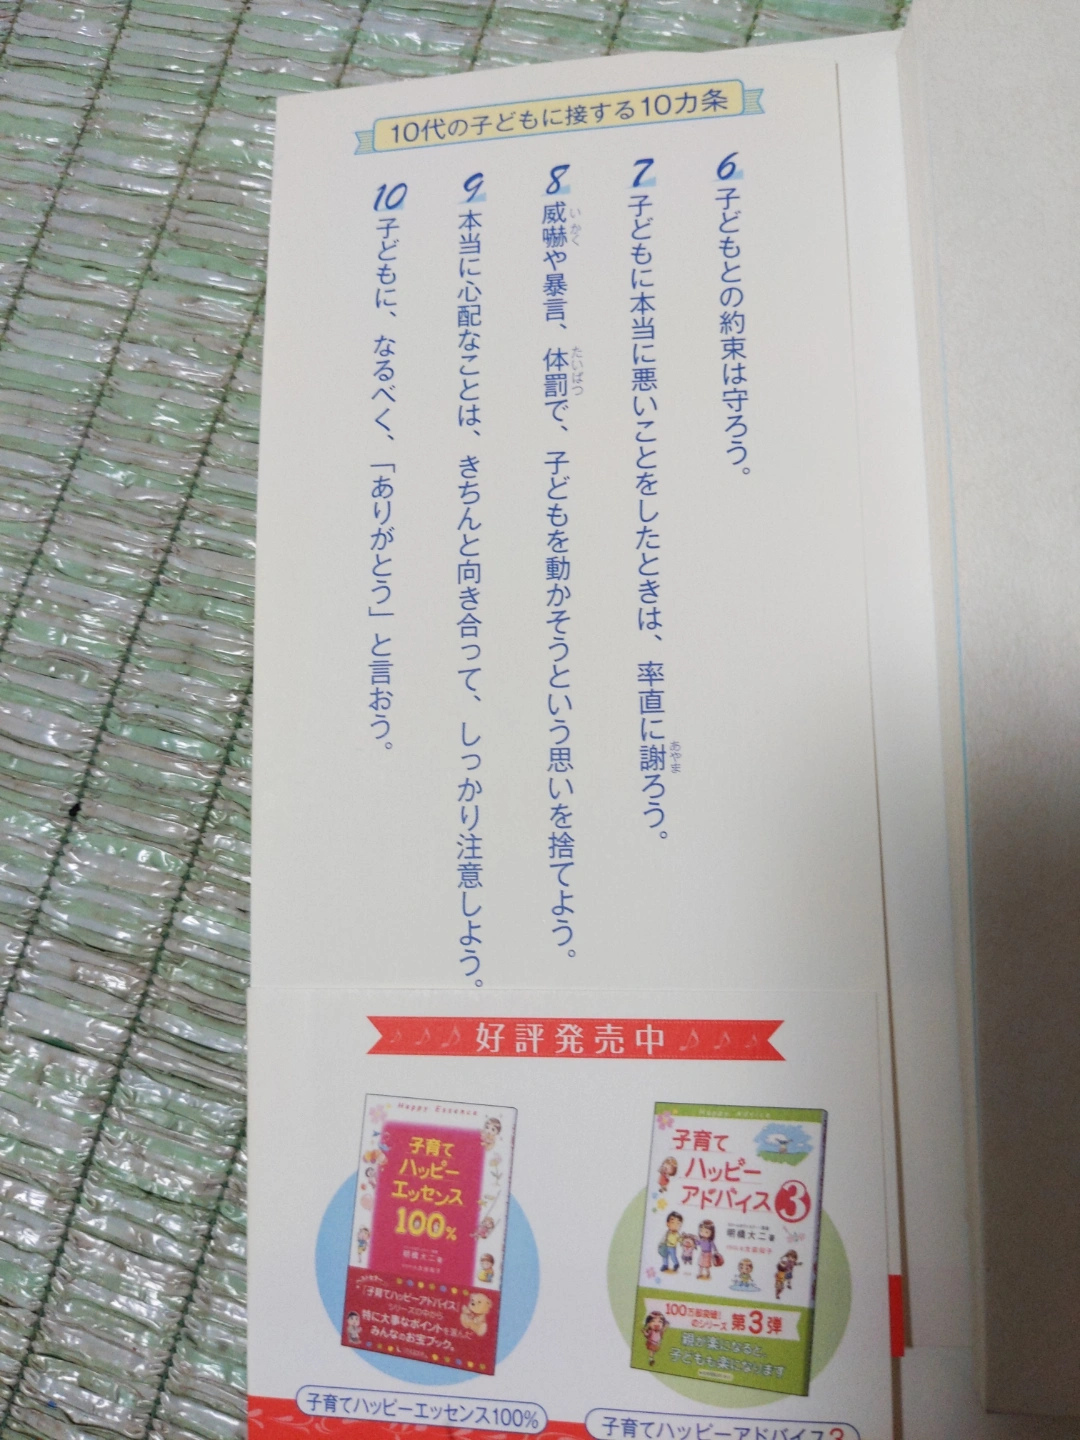 10代の子どもに接する10カ条
6 子どもとの約束は守ろう。
7 子どもに本当に悪いことをしたときは、率直に謝ろう。
あやま
8 威嚇や暴言、体罰で、子どもを動かそうという思いを捨てよう。
いかく
たいばつ
9 本当に心配なことは、きちんと向き合って、しっかり注意しよう。
10 子どもに、なるべく、「ありがとう」と言おう。
好評発売中
Happy Essence
子育て
ハッピー
エッセンス
100%
明橋大二 著
「子育てハッピーアドバイス」
シリーズの中から
特に大事なポイントを選んだ
みんなのお宝ブック。
子育てハッピーエッセンス100%
Happy Advice
子育て
ハッピー
アドバイス3
明橋大二 著
100万部突破!
のシリーズ 第3弾
親が楽になると、
子どもも楽になります
子育てハッピーアドバイス3